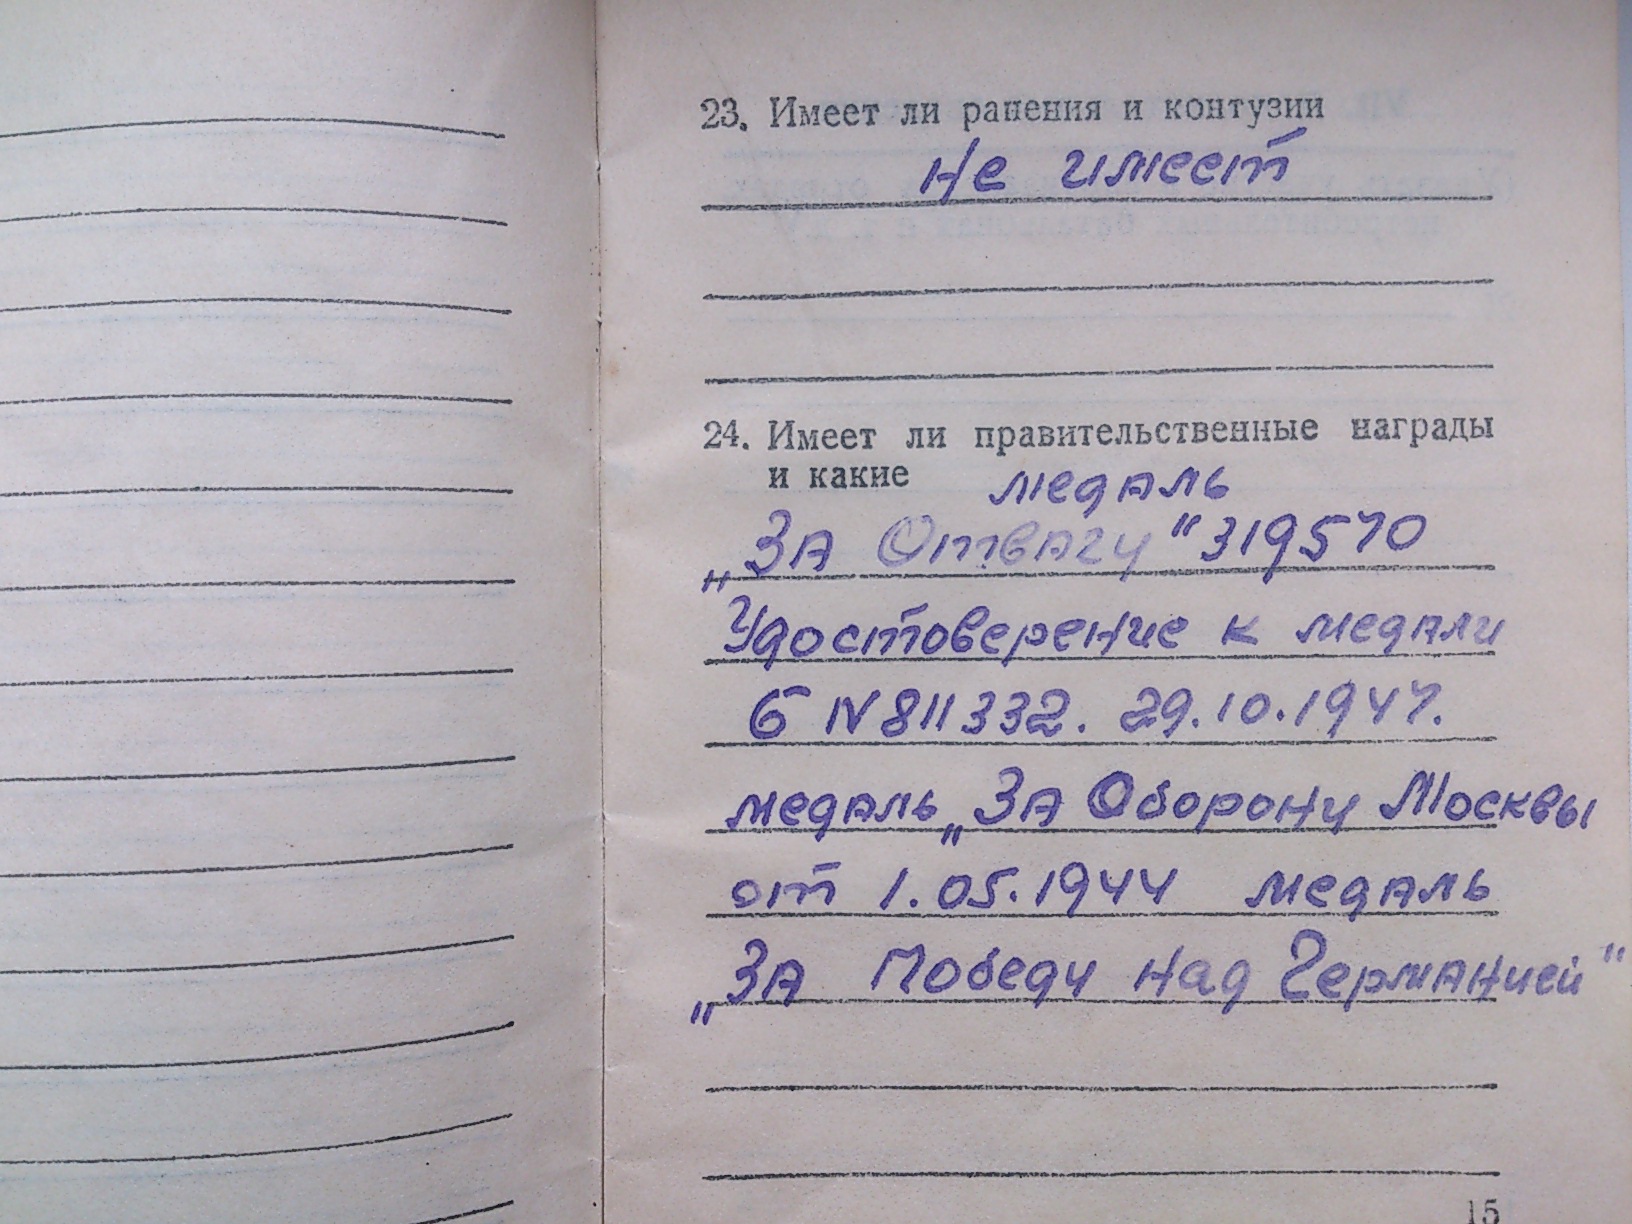 23. Имеет ли ранения и контузии
не имеет
24. Имеет ли правительственные награды
и какие медаль
„За Отвагу" 319570
Удостоверение к медали
Б № 811332. 29.10.1947.
медаль „За Оборону Москвы
от 1.05.1944 медаль
„За Победу над Германией"
15